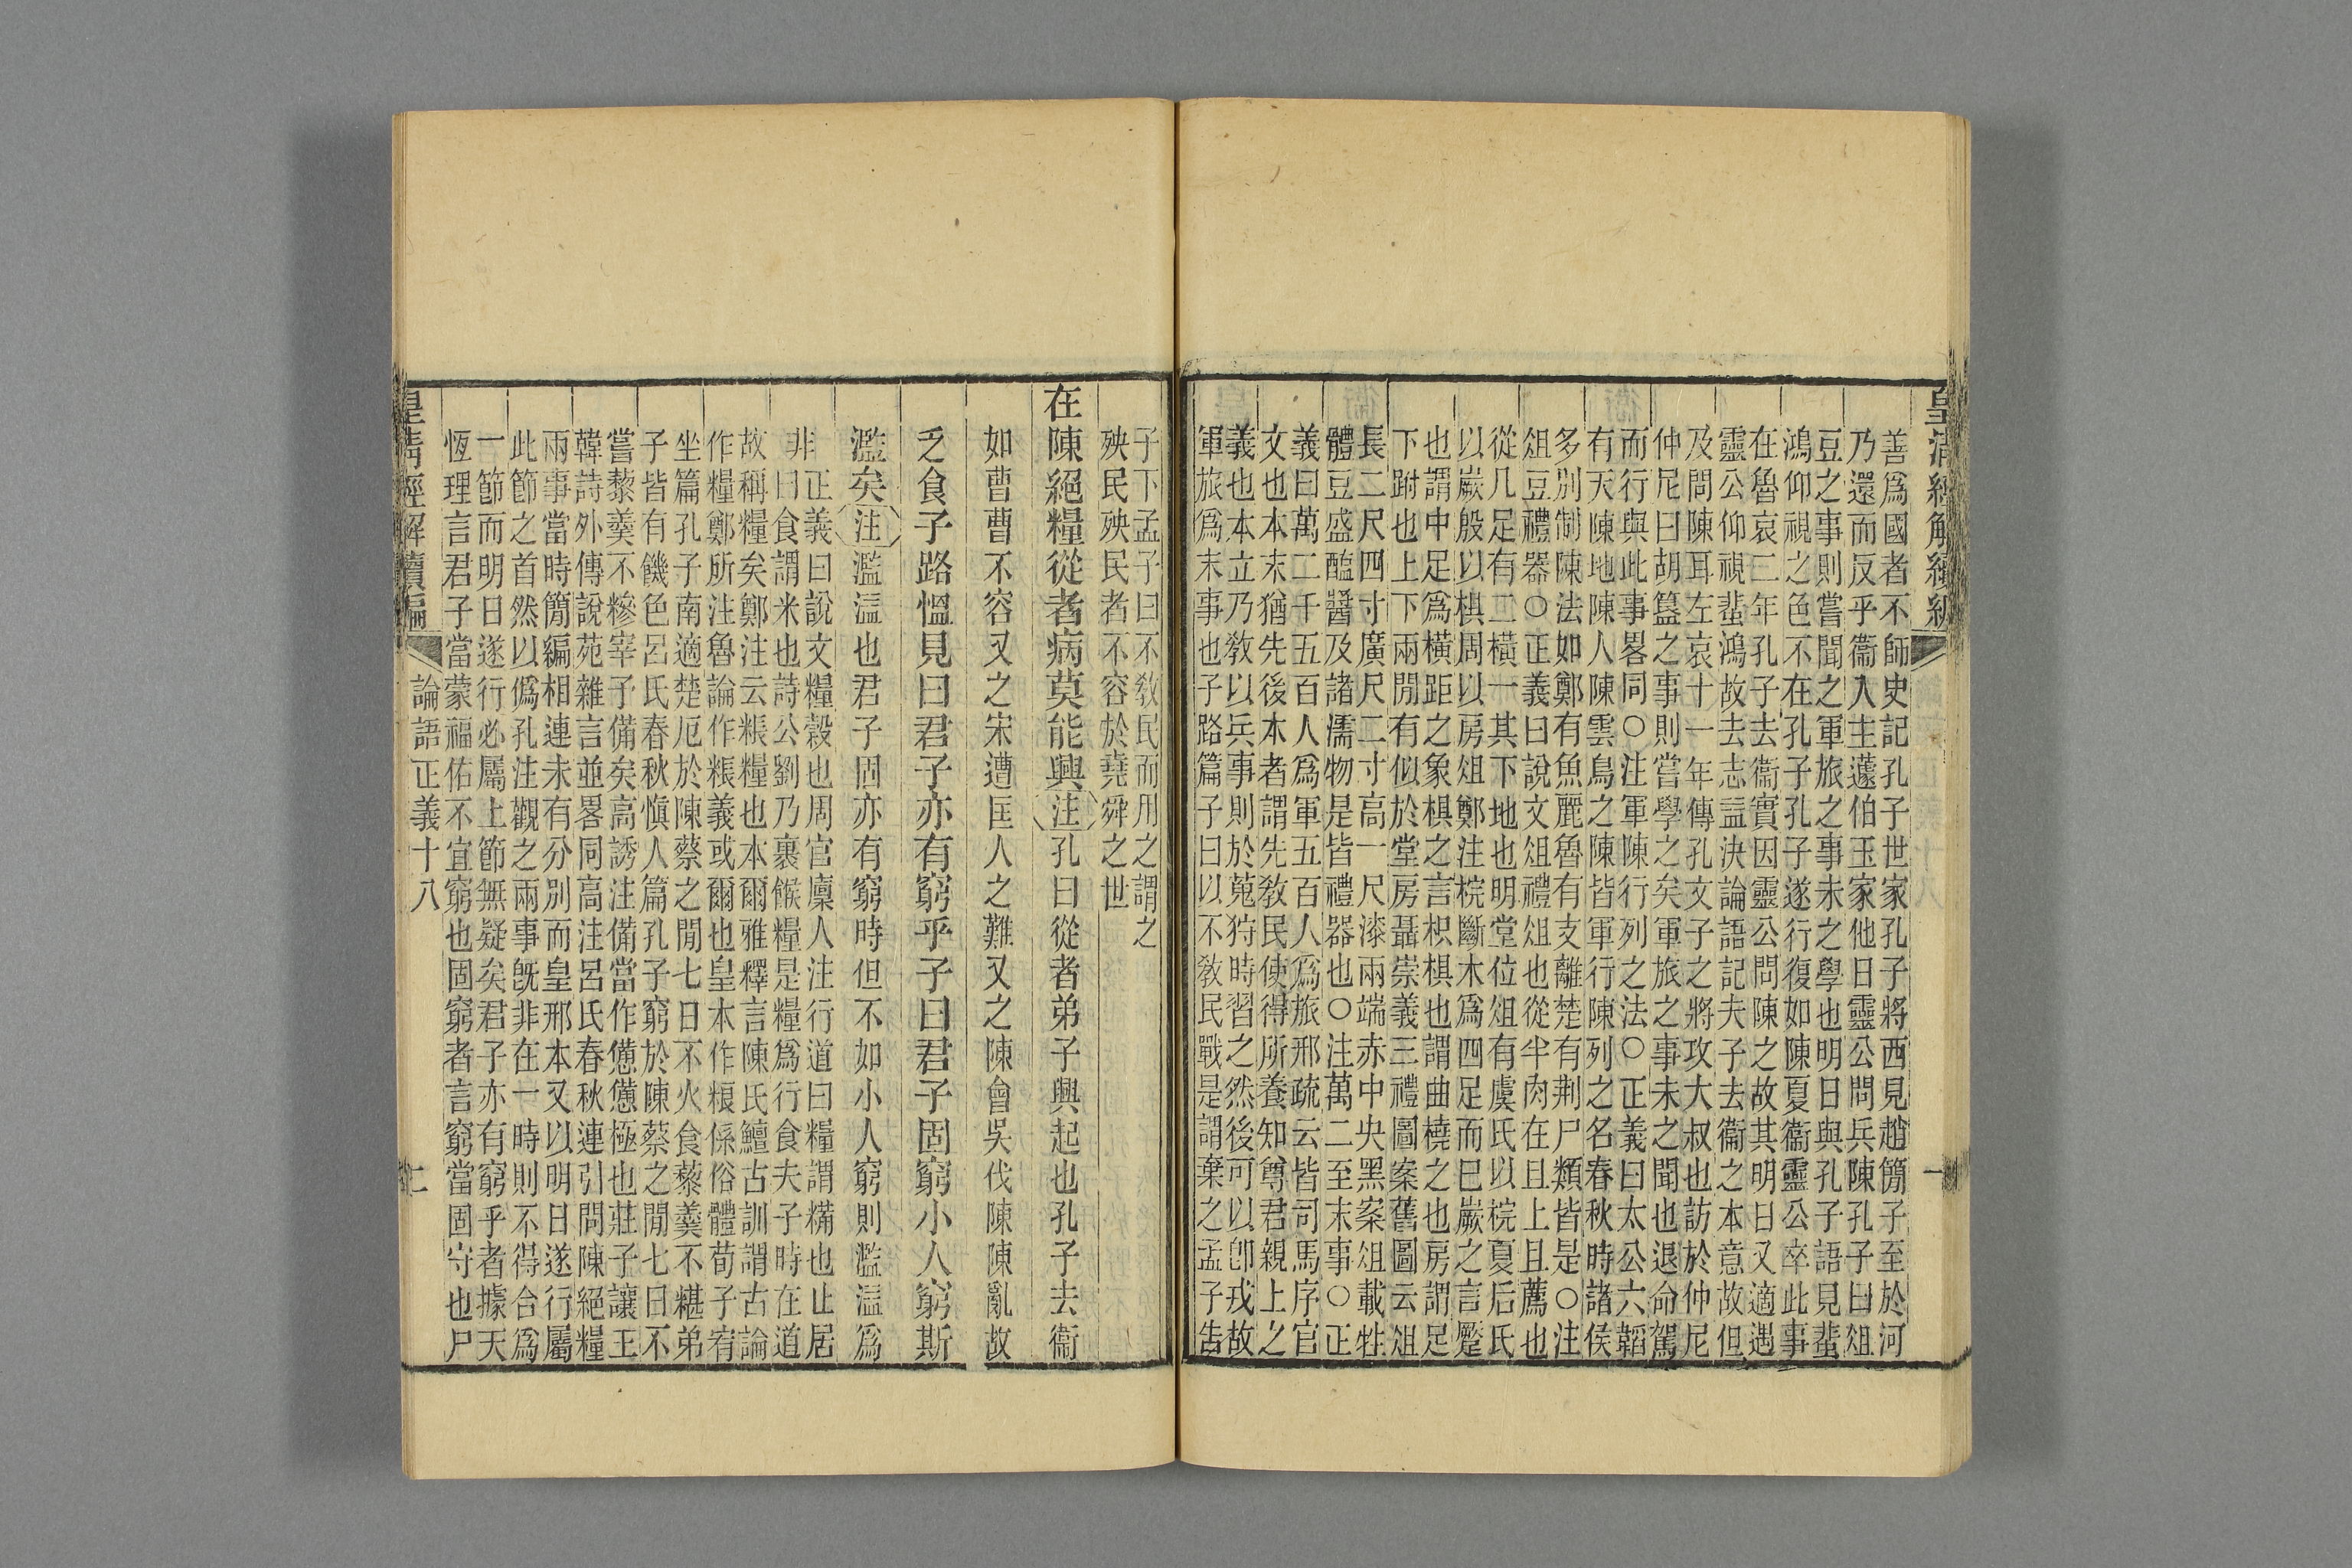 皇清經解續編
一
善爲國者不師史記孔子世家孔子將西見趙簡子至於河
乃還而反乎衞入主蘧伯玉家他日靈公問兵陳孔子曰俎
豆之事則嘗聞之軍旅之事未之學也明日與孔子語見蜚
鴻仰視之色不在孔子孔子遂行復如陳夏衞靈公卒此事
在魯哀二年孔子去衞實因靈公問陳之故其明日又適遇
靈公仰視蜚鴻故去志益決論語記夫子去衞之本意故但
及問陳耳左哀十一年傳孔文子之將攻大叔也訪於仲尼
仲尼曰胡簋之事則嘗學之矣軍旅之事未之聞也退命駕
而行與此事畧同○注軍陳行列之法○正義曰太公六韜
有天陳地陳人陳雲鳥之陳皆軍行陳列之名春秋時諸侯
多別制陳法如鄭有魚麗魯有支離楚有荆尸類皆是○注
俎豆禮器○正義曰說文俎禮俎也從半肉在且上且薦也
從几足有二橫一其下地也明堂位俎有虞氏以梡夏后氏
以嶡殷以椇周以房俎鄭注梡斷木爲四足而已嶡之言蹷
也謂中足爲橫距之象椇之言枳椇也謂曲橈之也房謂足
下跗也上下兩閒有似於堂房聶崇義三禮圖案舊圖云俎
長二尺四寸廣尺二寸高一尺漆兩端赤中央黑案俎載牲
體豆盛醢醬及諸濡物是皆禮器也○注萬二至末事○正
義曰萬二千五百人爲軍五百人爲旅邢疏云皆司馬序官
文也本末猶先後本者謂先敎民使得所養知尊君親上之
義也本立乃敎以兵事則於蒐狩時習之然後可以卽戎故
軍旅爲末事也子路篇子曰以不敎民戰是謂棄之孟子告
子下孟子曰不敎民而用之謂之
殃民殃民者不容於堯舜之世
在陳絕糧從者病莫能興注孔曰從者弟子興起也孔子去衞
如曹曹不容又之宋遭匡人之難又之陳會吳伐陳陳亂故
乏食子路慍見曰君子亦有窮乎子曰君子固窮小人窮斯
濫矣注濫溢也君子固亦有窮時但不如小人窮則濫溢爲
非
正義曰說文糧穀也周官廩人注行道曰糧謂糒也止居
曰食謂米也詩公劉乃裹餱糧是糧爲行食夫子時在道
故稱糧矣鄭注云粻糧也本爾雅釋言陳氏鱣古訓謂古論
作糧鄭所注魯論作粻義或爾也皇本作粮係俗體荀子宥
坐篇孔子南適楚厄於陳蔡之閒七日不火食藜羹不糂弟
子皆有饑色呂氏春秋愼人篇孔子窮於陳蔡之閒七日不
嘗藜羹不糝宰予備矣高誘注備當作憊憊極也莊子讓王
韓詩外傳說苑雜言並畧同高注呂氏春秋連引問陳絕糧
兩事當時簡編相連未有分別而皇邢本又以明日遂行屬
此節之首然以僞孔注觀之兩事旣非在一時則不得合爲
一節而明日遂行必屬上節無疑矣君子亦有窮乎者據天
恆理言君子當蒙福佑不宜窮也固窮者言窮當固守也尸
皇清經解續編
論語正義十八
二